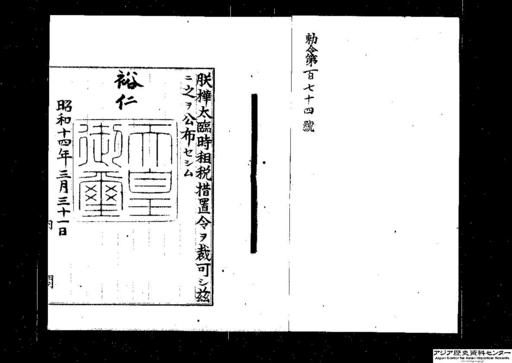 勅令第百七十四號
朕樺太臨時租税措置令ヲ裁可シ茲
ニ之ヲ公布セシム
裕仁
天皇
御璽
昭和十四年三月三十一日
内閣
アジア歴史資料センター
Japan Center for Asian Historical Records